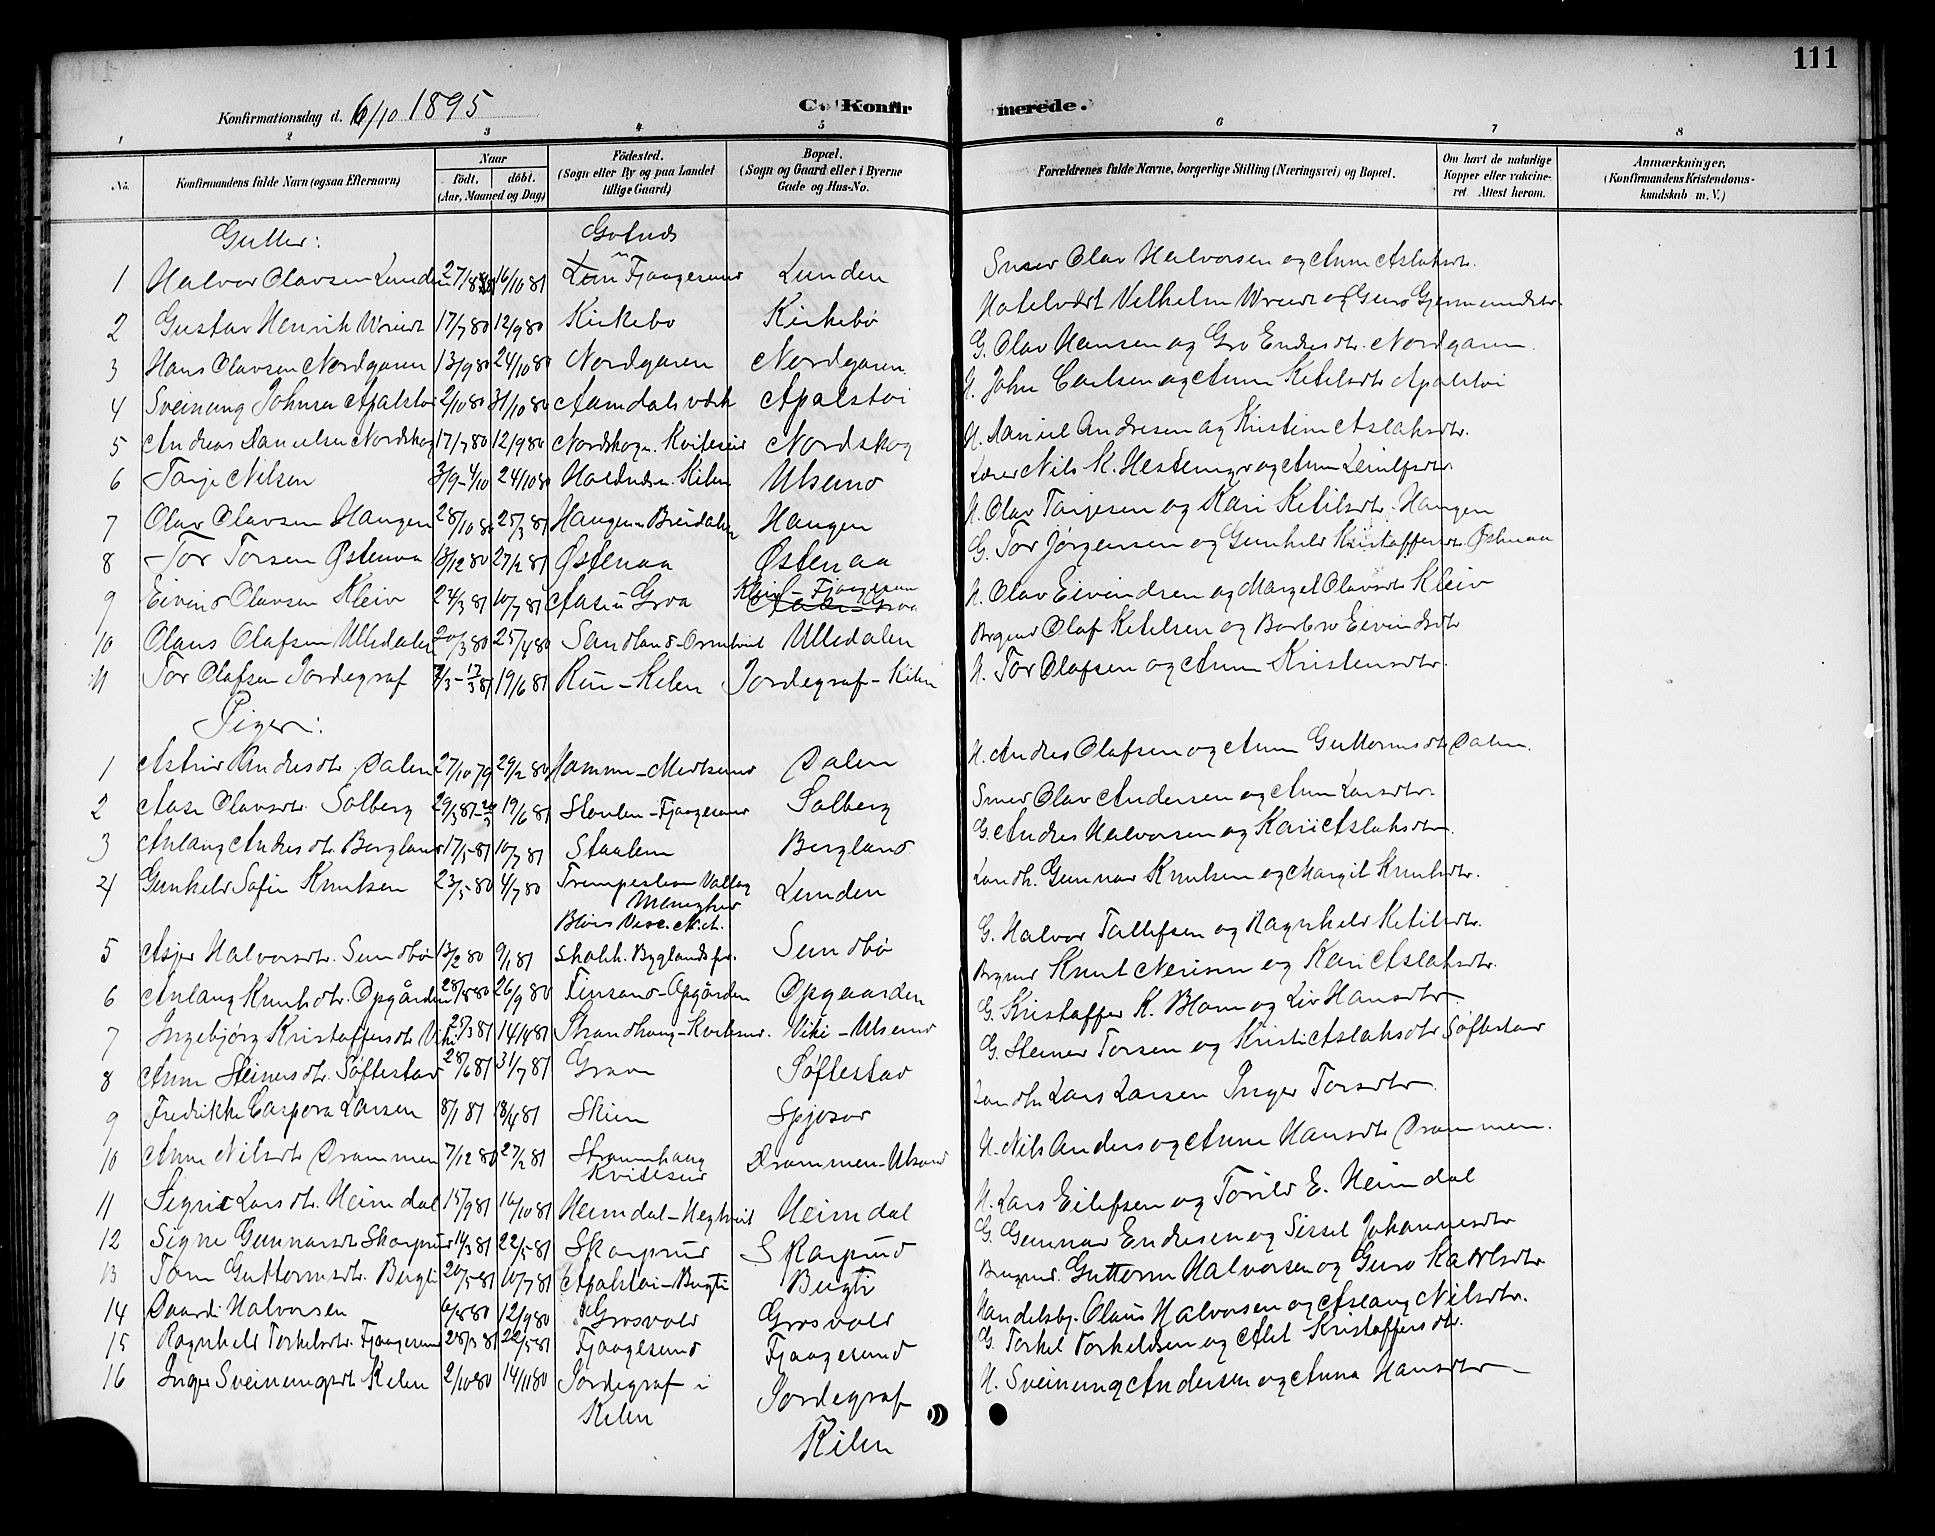 111
Konfirmationsdag d. 6/10 1895
C. Konfirmerede.
1 2 3 4 5 6 7 8
No. Konfirmandens fulde Navn (ogsaa Efternavn) Naar födt. döbt. (Aar, Maaned og Dag) Födested. (Sogn eller By og paa Landet tillige Gaard) Bopæl. (Sogn og Gaard eller i Byerne Gade og Hus-No. Forældrenes fulde Navne, borgerlige Stilling (Næringsvei) og Bopæl. Om havt de naturlige Kopper eller vakcineret Attest herom. Anmærkninger, (Konfirmandens Kristendomskundskab m. V.)
Gutter:
1 Halvor Olavsen Lunden 16/10 81 Fjaagesund Lunden Smed Olav Halvorsen og Anne Aslaksdtr.
2 Gustav Henrik Wriedt 17/7 80 12/9 80 Kirkebø Kirkebø Hotelvært Vilhelm Wriedt og Guro Gjermundsdtr.
3 Hans Olavsen Nordgaren 13/9 80 24/10 80 Nordgaren Nordgaren G. Olav Hansen og Gro Endresdtr. Nordgaren
4 Sveinung Johnsen Apalstøi 2/10 80 31/10 80 Aamdals værk Apalstøi H. John Carlsen og Anne Ketilsdtr Apalstøi
5 Andreas Danielsen Nordskog 17/7 80 12/9 80 Nordskogn. Kviteseid Nordskog H. Daniel Andresen og Kristine Aslaksdtr.
6 Tarje Nilsen 3/9-4/10 24/10 80 Kilen Utsund Lærer Nils K.
7 Olav Olavsen Haugen 28/10 80 25/3 81 Haugen Haugen H. Olav Tarjesen og Kari Ketilsdtr. Haugen
8 Tor Torsen Østenaa 13/12 80 27/2 81 Østenaa Østenaa G. Tor Jørgensen og Gunhild Kristoffersdtr Østenaa
9 Eivind Olavsen Kleiv 24/3 81 10/7 81 Aase u Groa Kleiv - Fjaagesund H. Olav Eivindsen og Margit Olavsdtr Kleiv
10 Olaus Olafsen Ulledalen 20/3 80 25/4 80 Sandland - Ulledalen Bygmd Olaf Ketilsen og Barbro Eivindsdtr
11 Tor Olafsen Jordegraf 19/6 81 Rui - Kilen Jordegraf - Kilen H. Tor Olafsen og Anne Kristensdtr.
Piger:
1 Astrid Andresdtr. Dalen 27/10 79 29/2 80 Dalen H. Andres Olafsen og Anne Guttormsdtr Dalen.
2 Aase Olavsdtr. Solberg 19/6 81 - Fjaagesund Solberg Smed Olav Andersen og Anne Larsdtr.
3 Anlaug Andresdtr. Bergland 17/5-81 10/7 81 Staalene Bergland G. Andres Halvorsen og Kari Aslaksdtr.
4 Gunhild Sofie Knutsen 23/5-80 4/7 80 Lunden Landh. Gunnar Knutsen og Margit Knutsdtr.
5 Halvorsdtr. Sundbø 13/2 80 9/1 81 Byglandsfj. Sundbø G. Halvor Tallefsen og Ragnhild Ketilsdtr.
6 Anlaug Knutsdtr. Opgården 28/8 80 26/9 80 Opgården Opgaarden Bygmd Knut Nerisen og Kari Aslaksdtr.
7 Ingebjørg Kristoffersdtr Viki 25/3 81 14/4 81 Strandhaug - Kvitesd. Viki - Utsund G. Kristoffer K. Blom og Liv Hansdtr
8 Anne Steinersdtr. Søftestad 28/6 81 31/7 81 Søftestad G. Steiner Torsen og Kristi Aslaksdtr Søftestad
9 Fredrikke Caspora Larsen 8/1 81 18/4 81 Skien Spjosod Landh. Lars Larsen Inger Torsdtr
10 Anne Nilsdtr Drammen 7/12 80 27/2 81 Straumhaug Kviteseid Drammen - Utsund H. Nils Anders og Anne Hansdtr Drammen.
11 Sigrid Larsdtr. Heimdal 15/9 81 16/10 81 Heimdal - Heimdal H. Lars Eilefsen og Torild E. Heimdal
12 Signe Gunnarsdtr Skorprud 14/3 81 22/5-81 Skorprud Skarprud G. Gunnar Endresen og Sissel Johannesdtr
13 Tone Guttormsdtr. Bugti 20/5-81 10/7 81 Apalstøi - Bugti Bugti Brugmd. Guttorm Halvorsen og Guro
14 Halvorsen 6/8 80 12/9 80 Grosvold Grosvold Handelsby. Olaus Halvorsen og Aslaug Nilsdtr.
15 Ragnhild Torkelsdtr. Fjaagesund 28/3 81 22/5-81 Fjaagesund Fjaagesund G. Torkel Torkeldsen og Alet Kristoffersdtr.
16 Inger Sveinungsdtr Kilen 2/10-80 14/11 80 Jordegraf i Kilen Jordegraf Kilen H. Sveinung Andersen og Anna Hansdtr